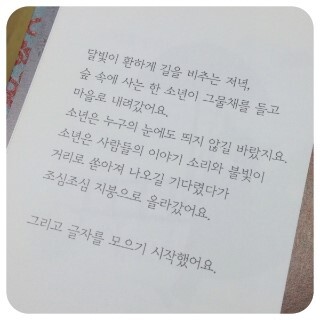 달빛이 환하게 길을 비추는 저녁,
숲 속에 사는 한 소년이 그물채를 들고
마을로 내려갔어요.
소년은 누구의 눈에도 띄지 않길 바랐지요.
소년은 사람들의 이야기 소리와 불빛이
거리로 쏟아져 나오길 기다렸다가
조심조심 지붕으로 올라갔어요.
그리고 글자를 모으기 시작했어요.